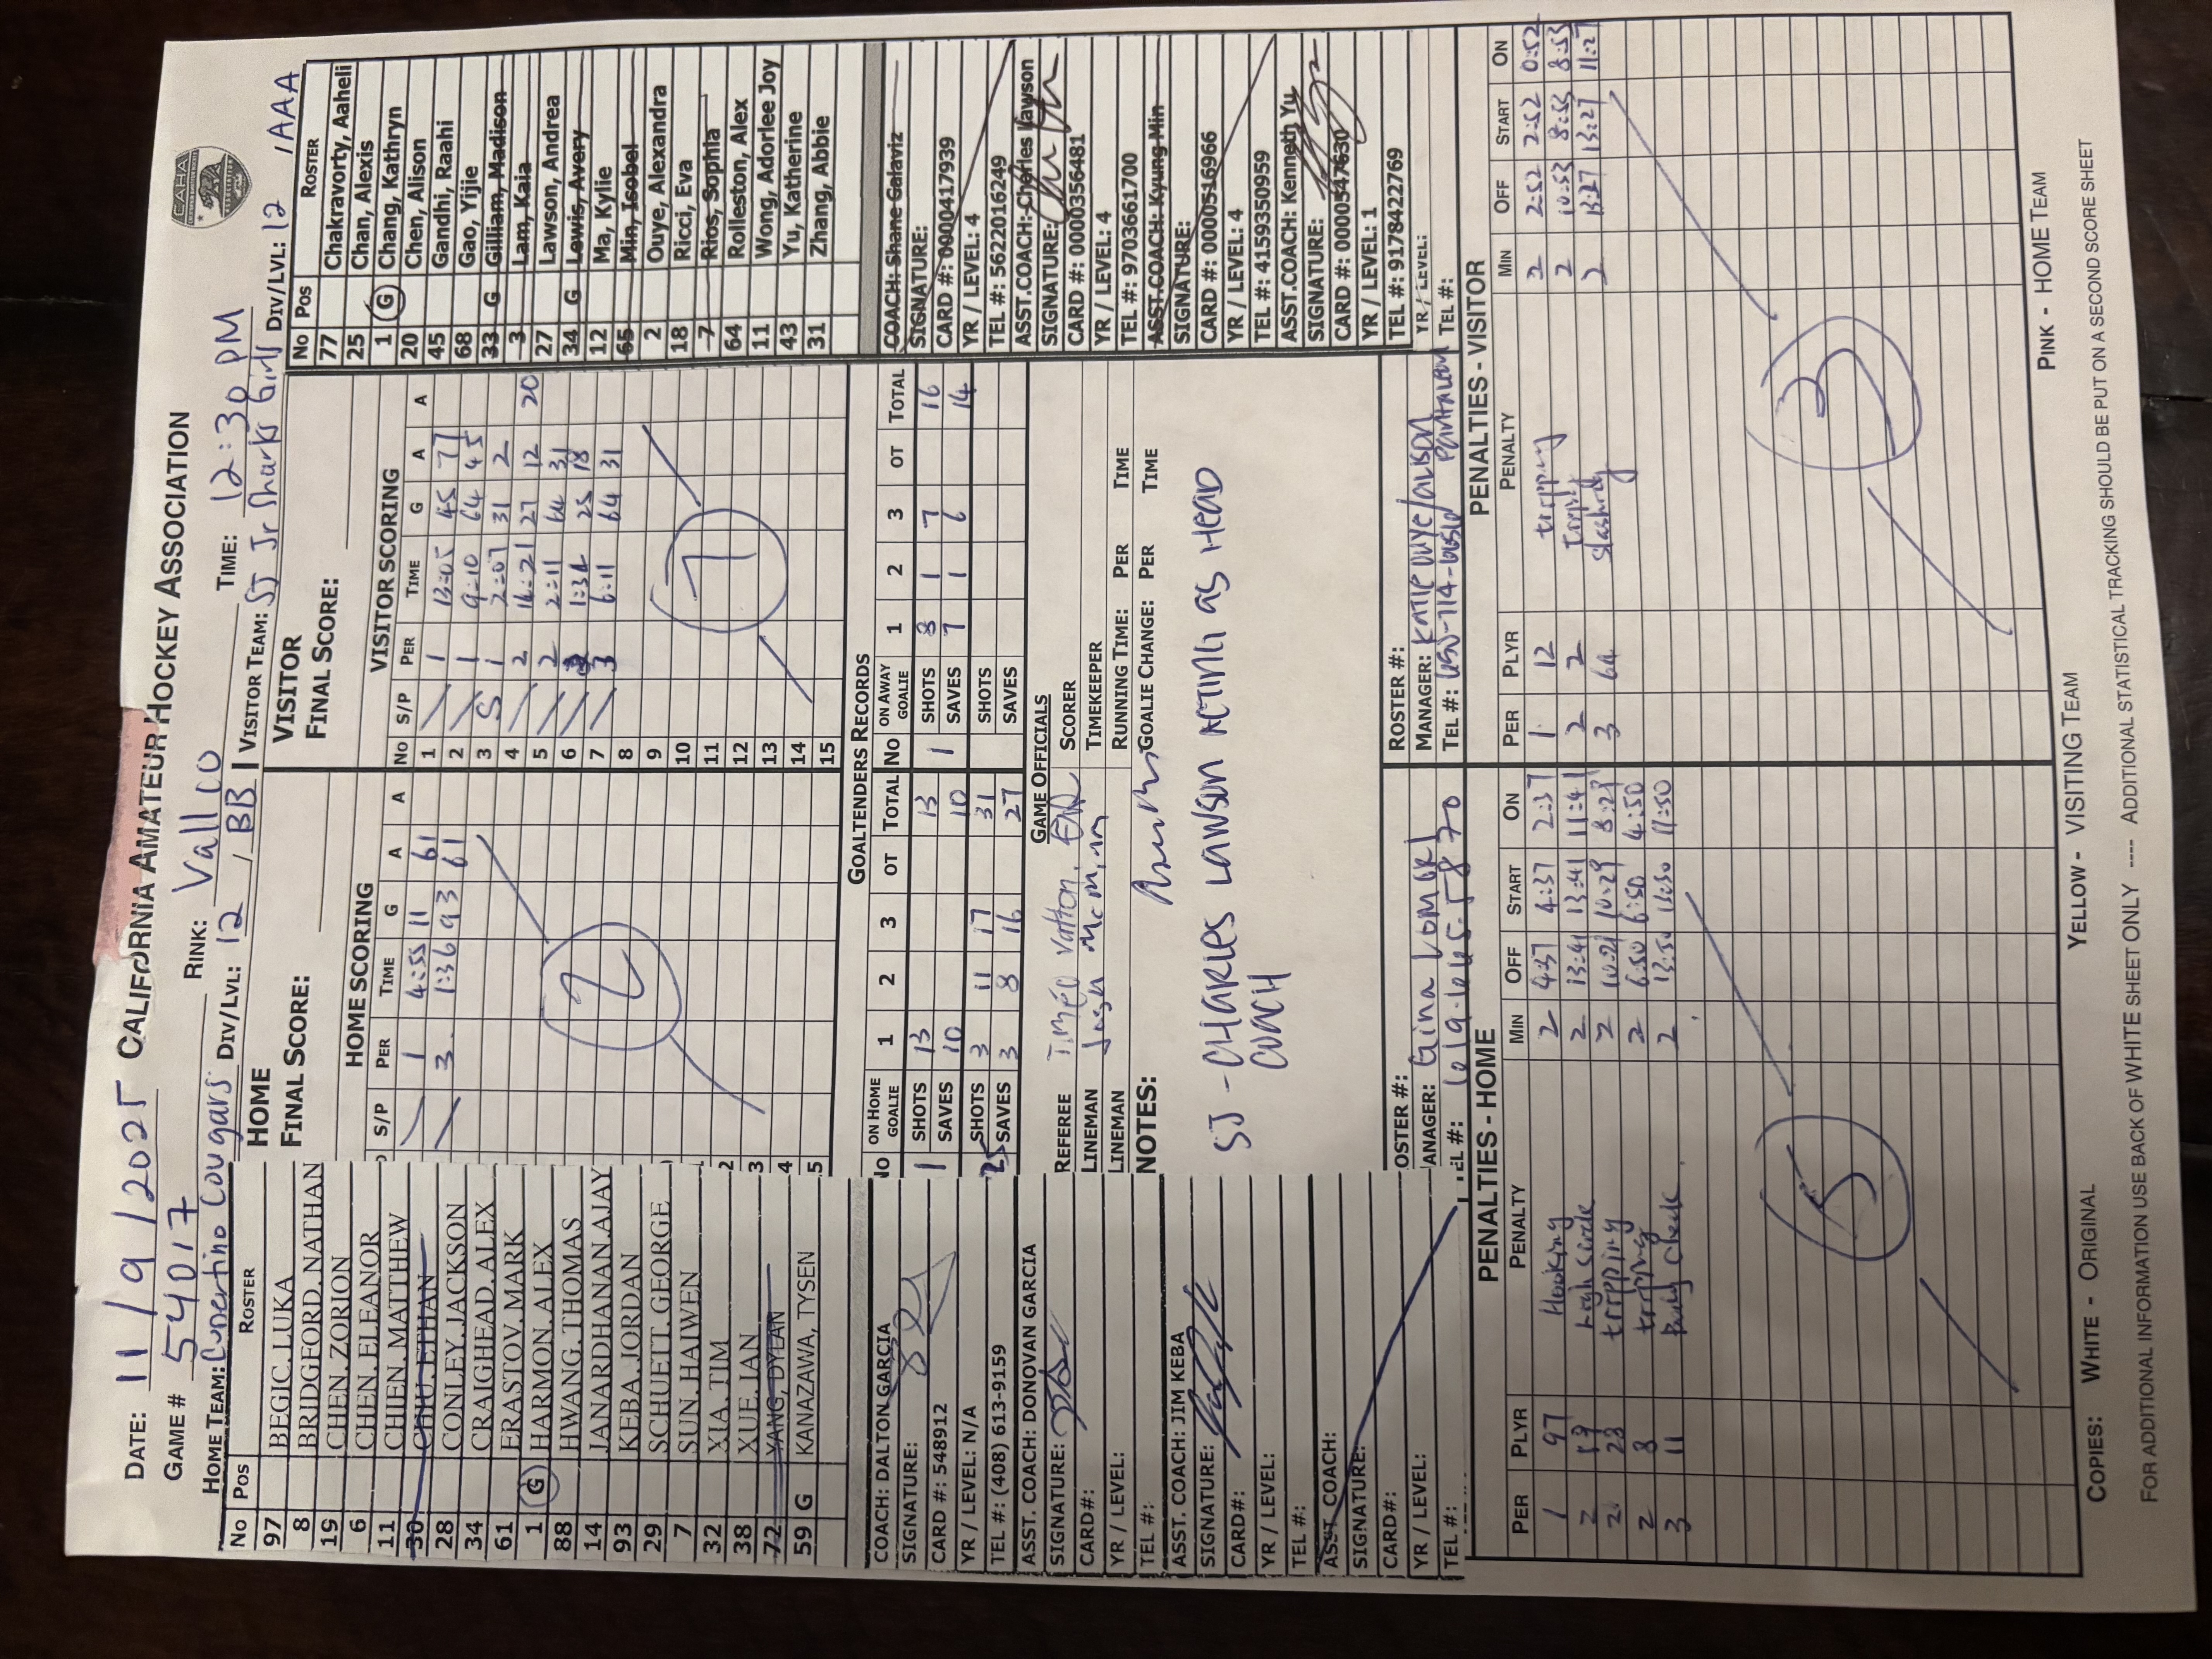 DATE: 11/9/2025 CALIFORNIA AMATEUR HOCKEY ASSOCIATION
CAHA
GAME # 54017 RINK: Vallco TIME: 12:30 PM
HOME TEAM: Cupertino Cougars DIV/LVL: 12 / BB VISITOR TEAM: SJ Jr Sharks Girls DIV/LVL: 12 / AAA
No Pos ROSTER
97 BEGIC, LUKA
8 BRIDGFORD, NATHAN
19 CHEN, ZORION
6 CHEN, ELEANOR
11 CHIEN, MATTHEW
30 CHIU, ETHAN
28 CONLEY, JACKSON
34 CRAIGHEAD, ALEX
61 ERASTOV, MARK
1 G HARMON, ALEX
88 HWANG, THOMAS
14 JANARDHANAN, AJAY
93 KEBA, JORDAN
29 SCHUETT, GEORGE
7 SUN, HAIWEN
32 XIA, TIM
38 XUE, IAN
72 YANG, DYLAN
59 G KANAZAWA, TYSEN
COACH: DALTON GARCIA
SIGNATURE:
CARD #: 548912
YR / LEVEL: N/A
TEL #: (408) 613-9159
ASST. COACH: DONOVAN GARCIA
SIGNATURE:
CARD#:
YR / LEVEL:
TEL #:
ASST. COACH: JIM KEBA
SIGNATURE:
CARD#:
YR / LEVEL:
TEL #:
ASST. COACH:
SIGNATURE:
CARD#:
YR / LEVEL:
TEL #:
HOME
FINAL SCORE:
HOME SCORING
S/P PER TIME G A A
1 4:55 11 61
3 1:36 93 61
2
VISITOR
FINAL SCORE:
VISITOR SCORING
No S/P PER TIME G A A
1 1 13:05 45 77
2 1 9:10 64 45
3 S 1 2:07 31 2
4 2 16:21 27 12 20
5 2 2:11 64 31
6 3 1:32 25 18
7 3 6:11 64 31
8
9
10
11
12
13
14
15
7
GOALTENDERS RECORDS
No ON HOME GOALIE 1 2 3 OT TOTAL
1 SHOTS 13 13
SAVES 10 10
25 SHOTS 3 11 17 31
SAVES 3 8 16 27
No ON AWAY GOALIE 1 2 3 OT TOTAL
1 SHOTS 8 1 7 16
SAVES 7 1 6 14
SHOTS
SAVES
GAME OFFICIALS
REFEREE
LINEMAN
LINEMAN
SCORER
TIMEKEEPER
RUNNING TIME: PER TIME
GOALIE CHANGE: PER TIME
NOTES:
SJ - CHARLES LAWSON ACTING AS HEAD
COACH
No Pos ROSTER
77 Chakravorty, Aaheli
25 Chan, Alexis
1 G Chang, Kathryn
20 Chen, Alison
45 Gandhi, Raahi
68 Gao, Yijie
33 G Gilliam, Madison
3 Lam, Kaia
27 Lawson, Andrea
34 G Lewis, Avery
12 Ma, Kylie
65 Min, Isobel
2 Ouye, Alexandra
18 Ricci, Eva
7 Rios, Sophia
64 Rolleston, Alex
11 Wong, Adorlee Joy
43 Yu, Katherine
31 Zhang, Abbie
COACH: Shane Galaviz
SIGNATURE:
CARD #: 0000417939
YR / LEVEL: 4
TEL #: 5622016249
ASST.COACH: Charles Lawson
SIGNATURE:
CARD #: 0000356481
YR / LEVEL: 4
TEL #: 9703661700
ASST.COACH: Kyung Min
SIGNATURE:
CARD #: 0000516966
YR / LEVEL: 4
TEL #: 4159350959
ASST.COACH: Kenneth Yu
SIGNATURE:
CARD #: 0000547630
YR / LEVEL: 1
TEL #: 9178422769
YR / LEVEL: TEL #:
ROSTER #:
MANAGER: Gina
TEL #: 619.665.5870
ROSTER #:
MANAGER: KATIE OUYE/
TEL #:
PENALTIES - HOME
PER PLYR PENALTY MIN OFF START ON
1 97 Hooking 2 4:37 4:37 2:37
2 2 13:41 13:41 11:41
2 28 tripping 2 10:29 8:29
2 8 tripping 2 6:50 6:50 4:50
3 11 Body Check 2 13:50 13:50 11:50
5
PENALTIES - VISITOR
PER PLYR PENALTY MIN OFF START ON
1 12 tripping 2 2:52 2:52 0:52
2 2 2 10:53 8:53
3 64 slashing 2 13:27 13:27
3
COPIES: WHITE - ORIGINAL YELLOW - VISITING TEAM PINK - HOME TEAM
FOR ADDITIONAL INFORMATION USE BACK OF WHITE SHEET ONLY ---- ADDITIONAL STATISTICAL TRACKING SHOULD BE PUT ON A SECOND SCORE SHEET